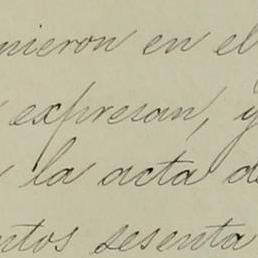 nieron en el
expresan, y
la acta de
ntos sesenta